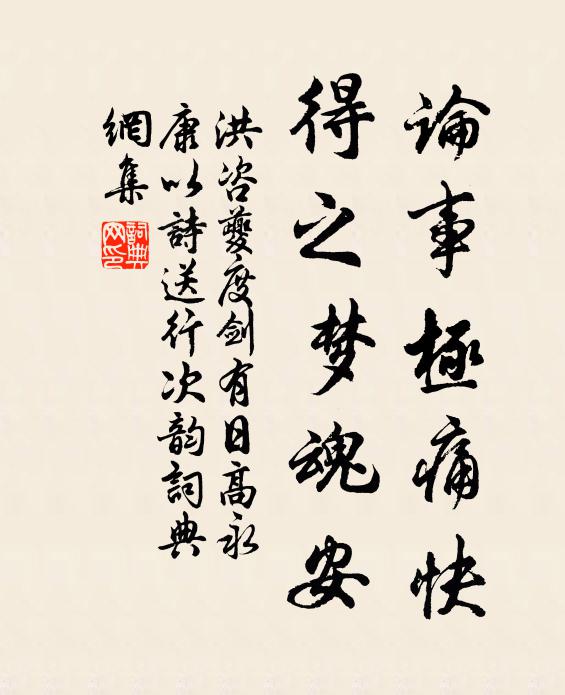 論事極痛快
得之梦魂安
洪咨夔度剑有日高永
康以詩送行次韵詞典
網集
詞典网印